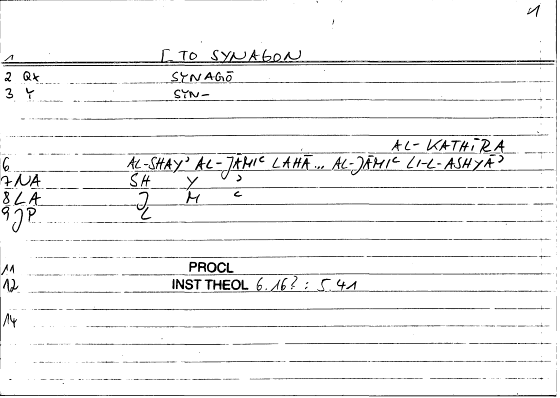 1
1 [ TO SYNAGON
2 Qx SYNAGŌ
3 Y SYN-
AL-KATHĪRA
6 AL-SHAYʾ AL-JĀMIʿ LAHĀ... AL-JĀMIʿ LI-L-ASHYĀʾ
7 NA SH Y ʾ
8 LA J M ʿ
9 JP L
11 PROCL
12 INST THEOL 6.16? : 5.41
14